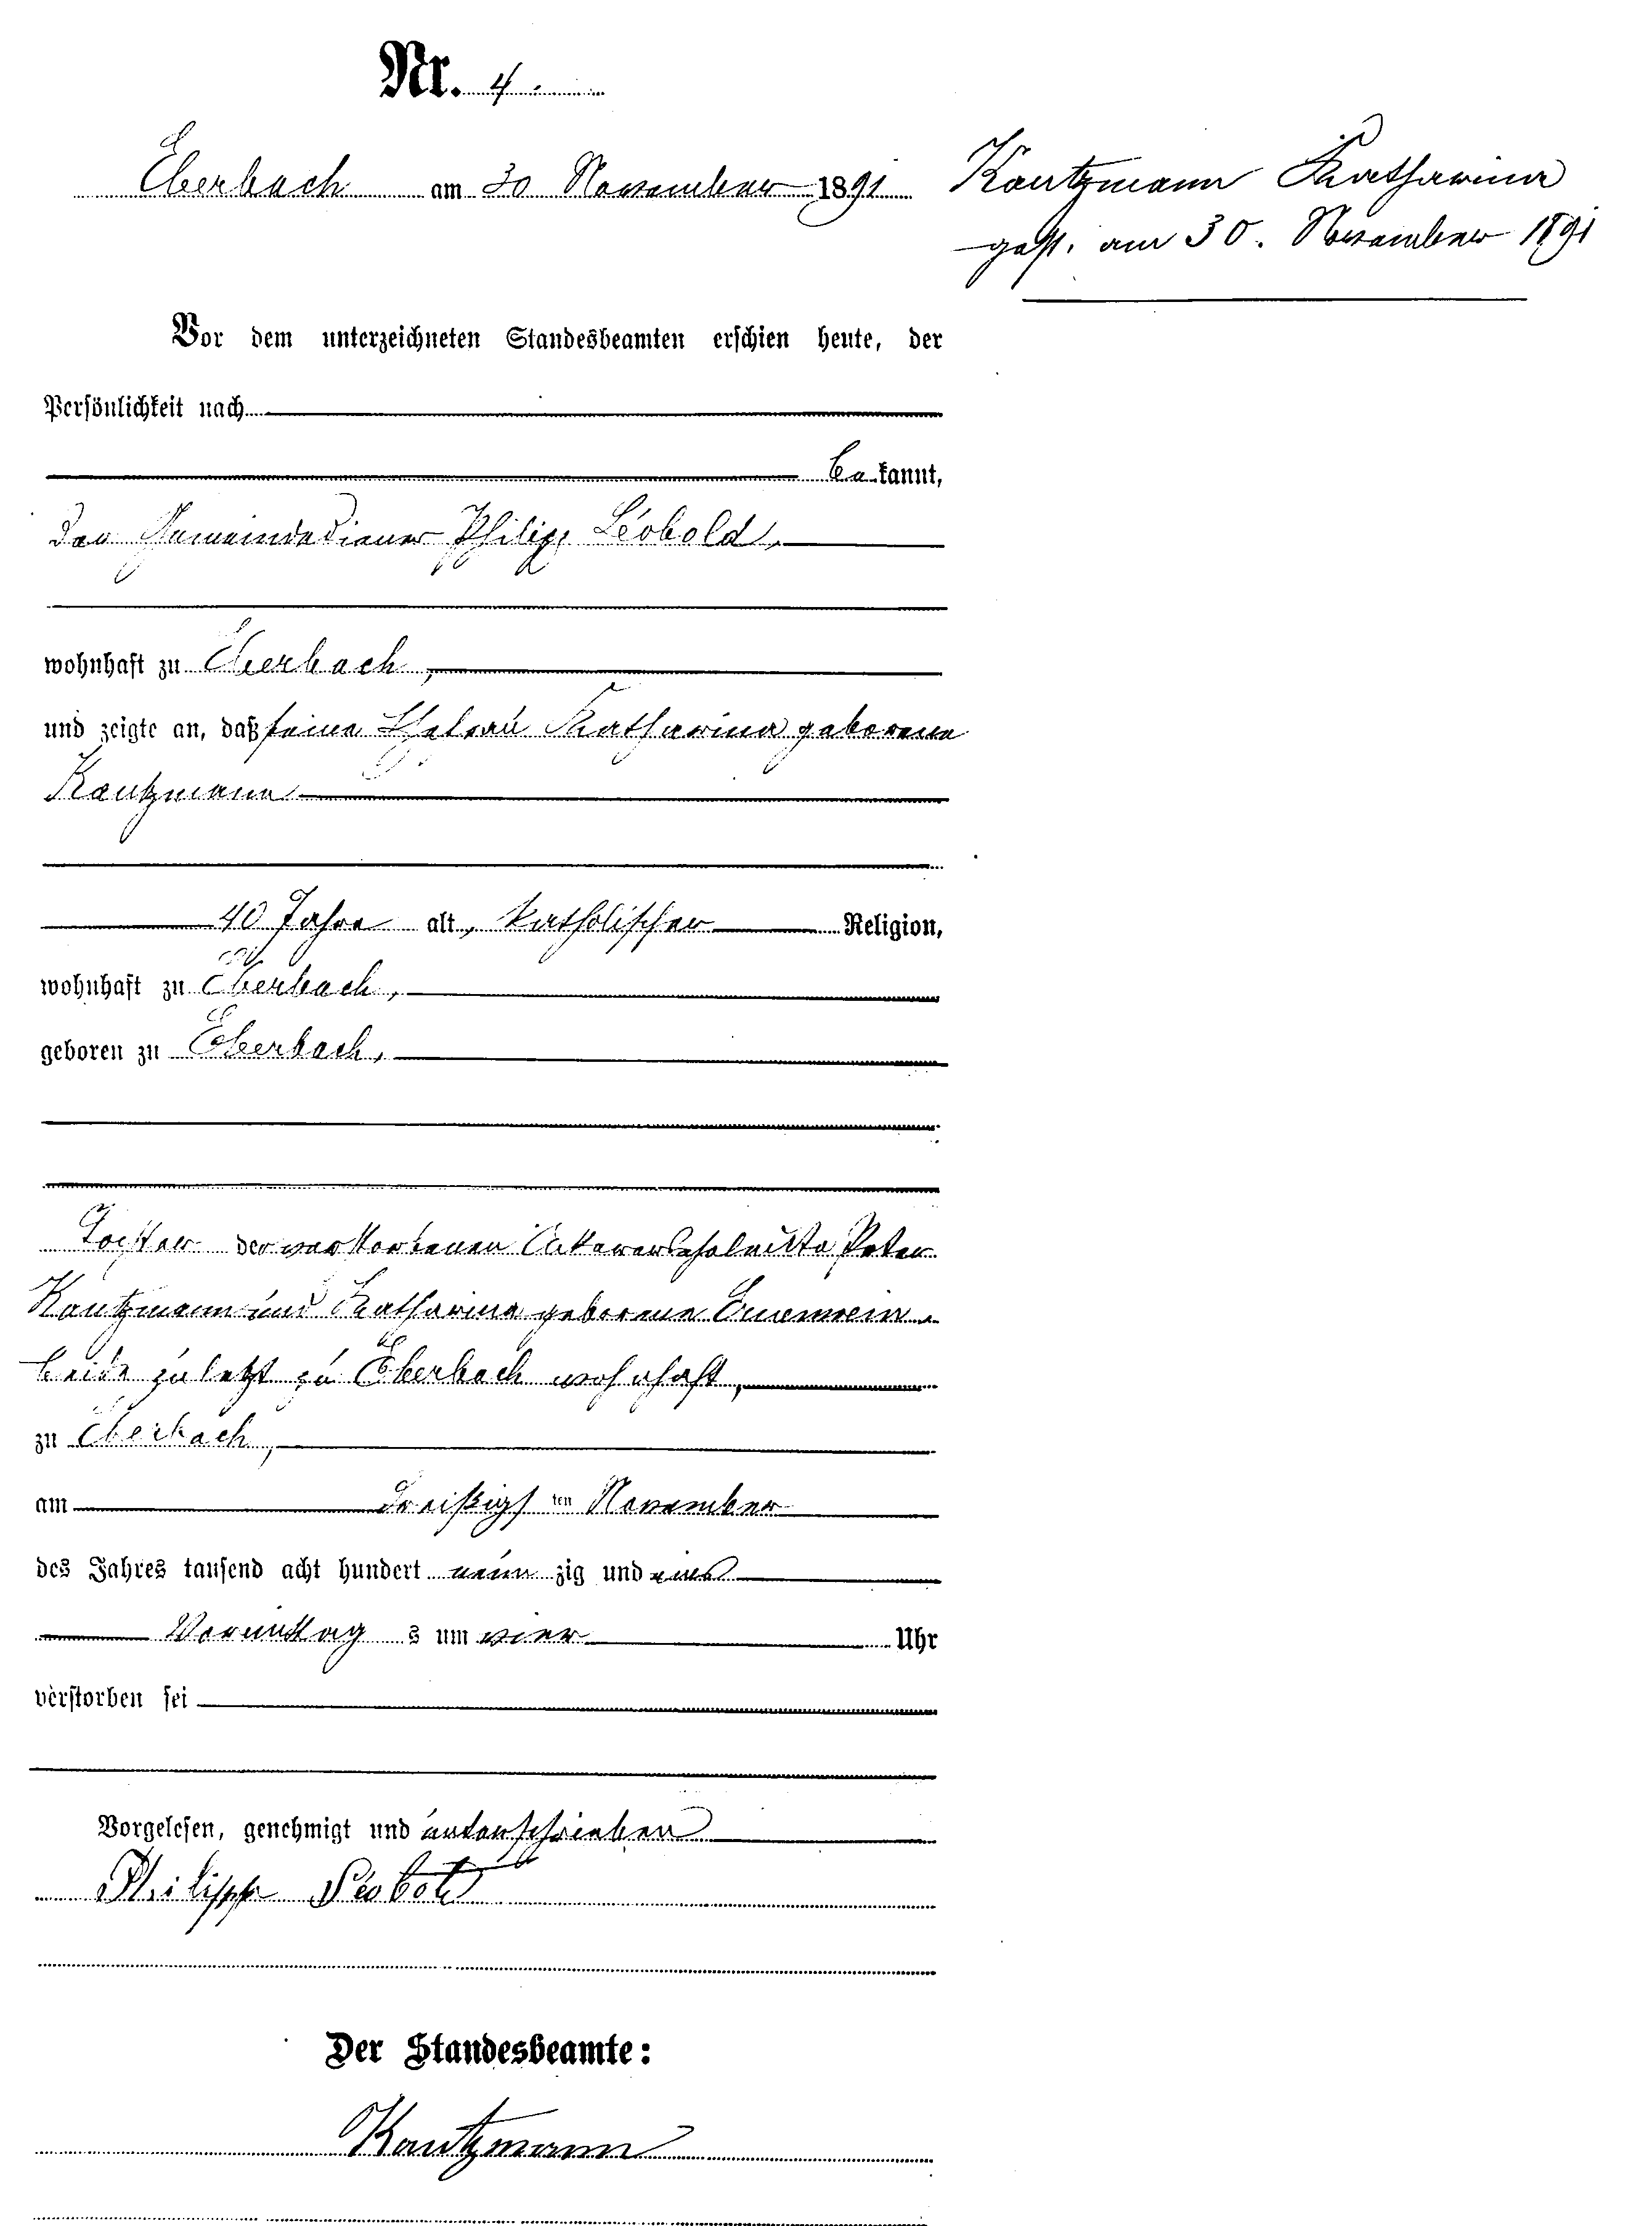 Nr. 4.
Eberbach am 30 November 1891
Kautzmann Katharina
gest. am 30. November 1891
Vor dem unterzeichneten Standesbeamten erschien heute, der
Persönlichkeit nach
bekannt,
der Gemeindediener Philipp Léobold,
wohnhaft zu Eberbach,
und zeigte an, daß seine Ehefrau Katharina geborene
Kautzmann
40 Jahre alt, katholischer Religion,
wohnhaft zu Eberbach,
geboren zu Eberbach,
Tochter der verstorbenen Ackererseheleute Peter
Kautzmann und Katharina geborene
beide zuletzt zu Eberbach wohnhaft,
zu Eberbach,
am dreißigsten November
des Jahres tausend acht hundert neunzig und eins
Vormittags um vier Uhr
verstorben sei
Vorgelesen, genehmigt und unterschrieben
Philipp Léobold
Der Standesbeamte:
Kautzmann